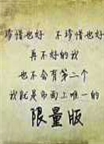 珍惜也好 不珍惜也好
再不好的我
也不会有第二个
我就是市面上唯一的
限量版